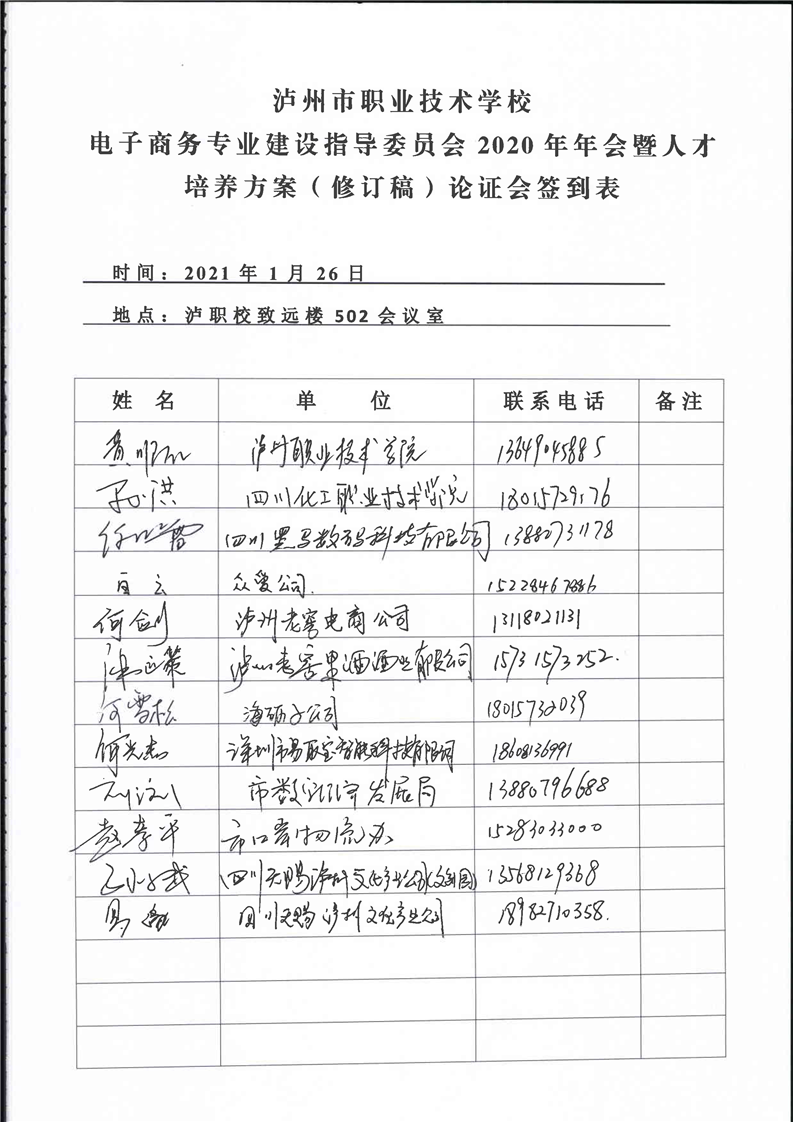 泸州市职业技术学校
电子商务专业建设指导委员会 2020 年年会暨人才
培养方案（修订稿）论证会签到表
时间：2021 年 1 月 26 日
地点：泸职校致远楼 502 会议室
姓 名 单 位 联系电话 备注
泸州职业技术学院 13649045885
四川化工职业技术学院 18015729176
四川黑马数码科技有限公司 13880731178
百云 众爱公司. 15228467886
何剑 泸州老窖电商公司 13118021131
泸州老窖果酒酒业有限公司 15731573252.
何雪松 公司 18015732039
何光杰 深圳市易联宝智能科技有限公司 18608136991
市数字经济发展局 13880796688
赵孝平 市口岸物流办 15283033000
四川天赐泸州文化产业公司(文创园) 13568129368
四川天赐泸州文化产业公司 18982710358.